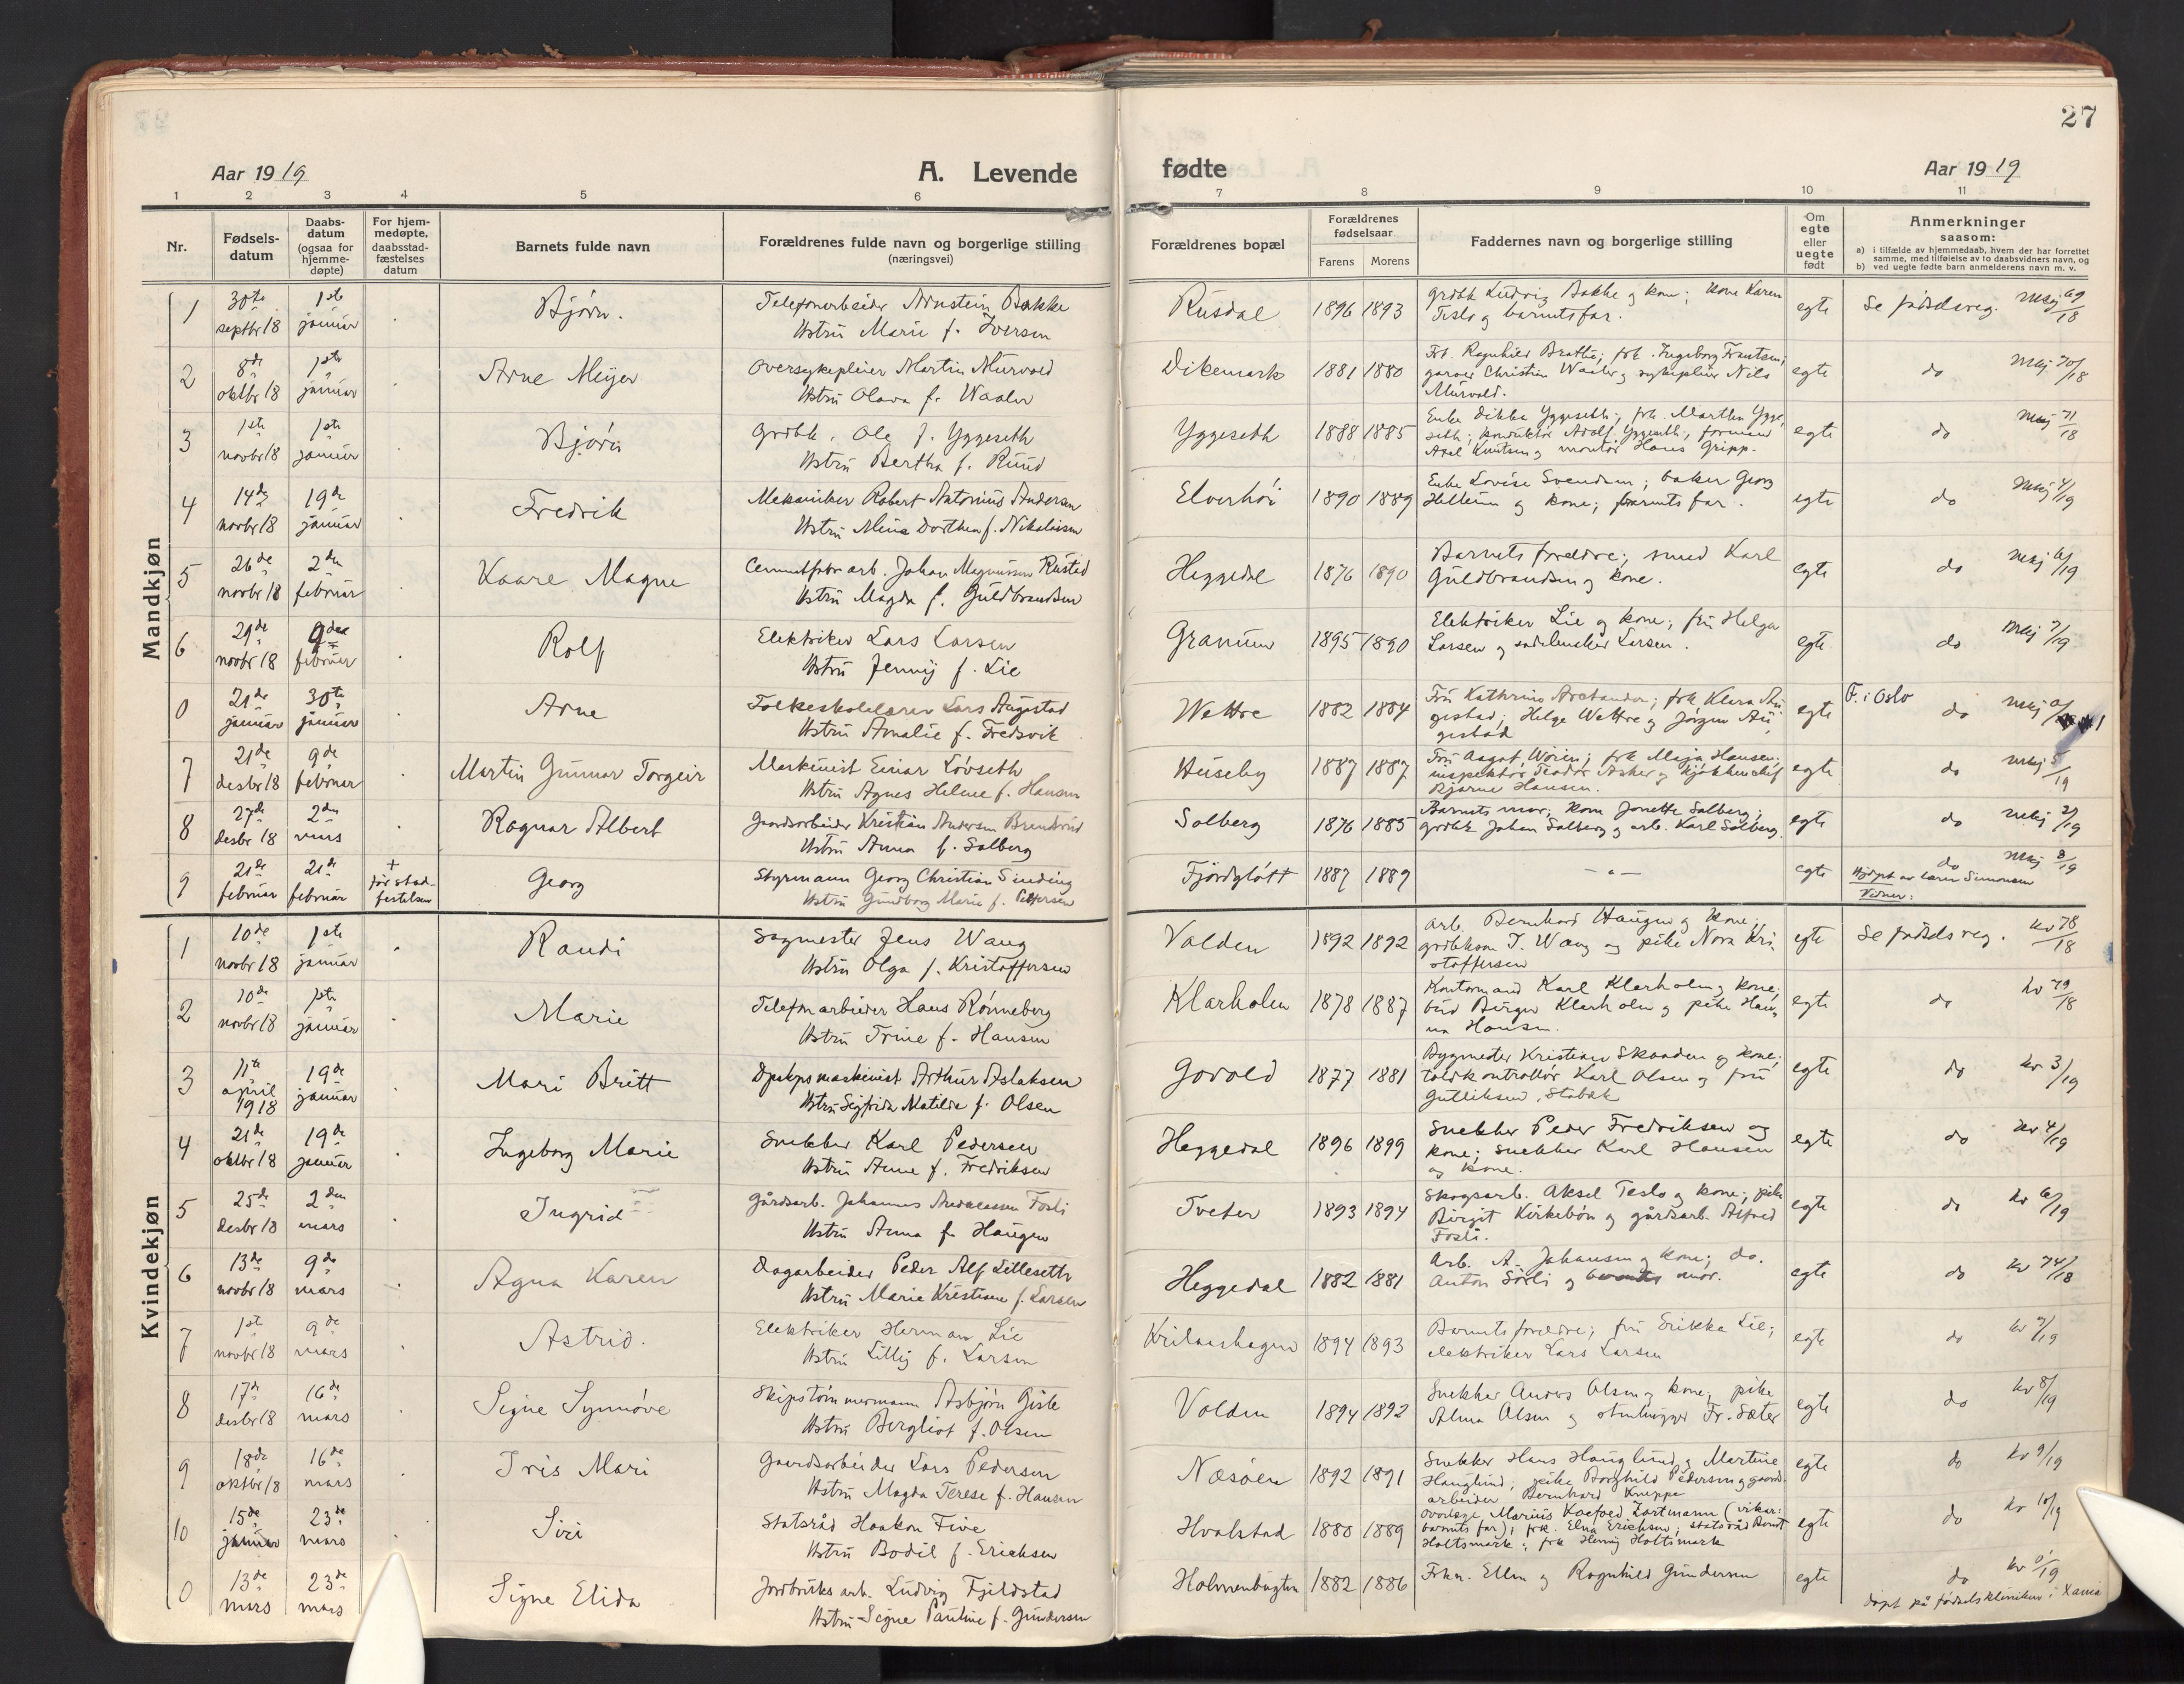 27
Aar 1919
A. Levende
fødte
Aar 1919
1 2 3 4 5 6 7 8 9 10 11
Nr.
Fødsels-
datum
Daabs-
datum
(ogsaa for
hjemme-
døpte)
For hjem-
medøpte,
daabsstad-
fæstelses
datum
Barnets fulde navn
Forældrenes fulde navn og borgerlige stilling
(næringsvei)
Forældrenes bopæl
Forældrenes
fødselsaar
Farens Morens
Faddernes navn og borgerlige stilling
Om
egte
eller
uegte
født
Anmerkninger
saasom:
a) i tilfælde av hjemmedaab, hvem der har forrettet
samme, med tilføielse av to daabsvidners navn, og
b) ved uegte fødte barn anmelderens navn m. v.
Mandkjøn
1 30te septbr 18 1ste januar Bjørn.
Telefonarbeider Arnstein Bakke
Hstru Marie f. Iversen
Rusdal 1896 1893
grdbk Ludvig Bakke og kone; kone Karen
Teslo og barnets far.
egte Se fødselsreg. Mkj 69/18
2 8de oktbr 18 1ste januar Arne Meyer
Oversykepleier Martin Murvold
Hstru Olava f. Waaler
Dikemark 1881 1880
Frk. Ragnhild Bratlie; frk. Ingeborg Frantsen;
garver Christian Waaler og sykepleier Nils
Murvold.
egte do Mkj 70/18
3 1ste novbr 18 1ste januar Bjørn
Grdbk. Ole J. Yggeseth
Hstru Bertha f. Ruud
Yggeseth 1888 1885
Enke Dikka Yggeseth; frk. Marthea Ygge-
seth; konduktør Adolf Yggeseth, formand
Axel Knutsen og montør Hans Gripp.
egte do Mkj 71/18
4 14de novbr 18 19de januar Fredrik
Mekaniker Robert Antonius Andersen
Hstru Mina Dorthea f. Nikolaisen
Elverhøi 1890 1889
Enke Lovise Svendsen; baker Georg
og kone; barnets far.
egte do Mkj 4/19
5 26de novbr 18 2den februar Kaare Magne
Cementfabr arb. Johan Magnussen Rustad
Hstru Magda f. Guldbrandsen
Heggedal 1876 1890
Barnets forældre; smed Karl
Guldbrandsen og kone.
egte do Mkj 6/19
6 29de novbr 18 9de februar Rolf
Elektriker Lars Larsen
Hstru Jenny f. Lie
Granum 1895 1890
Elektriker Lie og kone; fru Helga
Larsen og Larsen.
egte do Mkj 7/19
0 21de januar 30te januar Arne
Folkeskolelærer Lars Augestad
Hstru Amalie f. Fredsvik
Wettre 1882 1884
Fru Kathrine; frk Klara Au-
gestad; Helge Wettre og Jørgen Au-
gestad
egte F. i Oslo do Mkj
7 21de desbr 18 9de februar Martin Gunnar Torgeir
Maskinist Einar Løvseth
Hstru Agnes Helene f. Hansen
Huseby 1887 1887
Fru Aagot; frk Maja Hansen;
inspektør Teodor Asker og kjøkkenchef
Bjarne Hansen.
egte do Mkj 5/19
8 27de desbr 18 2den mars Ragnar Albert
Gaardsarbeider Kristian Andersen
Hstru Anna f. Solberg
Solberg 1876 1885
Barnets mor; kone Jonette Solberg;
grdbk Johan Solberg og arb. Karl Solberg.
egte do Mkj 2/19
9 21de februar 21de februar + før stad-
festelsen Georg
Styrmann Georg Christian Sinding
Hstru Gundborg Marie f. Pettersen
Fjordgløtt 1887 1889 — " — egte do Mkj 8/19
Hjdøpt av lærer Simonsen
Vidner:
Kvindekjøn
1 10de novbr 18 1ste januar Randi
Sagmester Jens Wang
Hstru Olga f. Kristoffersen
Volden 1892 1892
Arb. Bernhard Haugen og kone;
grdbksøn J. Wang og pike Nora Kri-
stoffersen
egte Se fødselsreg. kv 78/18
2 10de novbr 18 1ste januar Marie
Telefonarbeider Hans Rønneberg
Hstru Trine f. Hansen
Klarholm 1878 1887
Kontormand Karl Klarholm og kone;
bud Birger Klarholm og pike Han-
na Hansen.
egte do kv 79/18
3 11te april 1918 19de januar Mari Britt
Maskinist Arthur Aslaksen
Hstru Sigfrida Matilde f. Olsen
Govold 1877 1881
Bygmester Kristian Skaaden og kone;
toldkontrollør Karl Olsen og fru
Gulliksen, Stabæk
egte do kv 3/19
4 21de oktbr 18 19de januar Ingeborg Marie
Snekker Karl Pedersen
Hstru Anne f. Fredriksen
Heggedal 1896 1899
Snekker Peder Fredriksen og
kone; snekker Karl Hansen
og kone.
egte do kv 4/19
5 25de desbr 18 2den mars Ingrid
Gårdsarb. Johannes Andreassen Fosli
Hstru Anna f. Haugen
Tveter 1893 1894
Skogsarb. Aksel Teslo og kone; pike
Birgit Kirkebøn og gårdsarb. Alfred
Fosli.
egte do kv 6/19
6 13de novbr 18 9de mars Agna Karen
Dagarbeider Peder Alf Lilleseth
Hstru Marie Kristense f. Larsen
Heggedal 1882 1881
Arb. A. Johansen og kone; do.
Anton Sørli og barnets mor.
egte do kv 74/18
7 1ste novbr 18 9de mars Astrid.
Elektriker Herman Lie
Hstru Lilly f. Larsen
1894 1893
Barnets forældre; fru Erikka Lie;
elektriker Lars Larsen
egte do kv 7/19
8 17de desbr 18 16de mars Signe Synnøve
Skipstømmermann Asbjørn Giske
Hstru Bergliot f. Olsen
Volden 1894 1892
Snekker Anders Olsen og kone; pike
Alma Olsen og stenhugger Fr. Sæter
egte do kv 8/19
9 18de oktbr 18 16de mars Iris Mari
Gaardsarbeider Lars Pedersen
Hstru Magda Terese f. Hansen
Næsøen 1892 1891
Snekker Hans Hauglund og Martine
Hauglund; pike Borghild Pedersen og gaards-
arbeider Bernhard Knippe
egte do kv 9/19
10 15de januar 23de mars Siri
Statsråd Haakon Five
Hstru Bodil f. Erichsen
Hvalstad 1880 1889
Overlæge Marius Koefoed Zartmann (vikar:
barnets far); frk. Elna Erichsen; statsråd Bernt
Holtsmark; frk Henny Holtsmark
egte do kv 10/19
0 13de mars 23de mars Signe Elida
Jordbruks arb. Ludvig Fjeldstad
Hstru Signe Pauline f. Gundersen
Holmenbugten 1882 1886
Frkn. Ellen og Ragnhild Gundersen
egte do kv 0/19
døpt på fødselskliniken i Xania